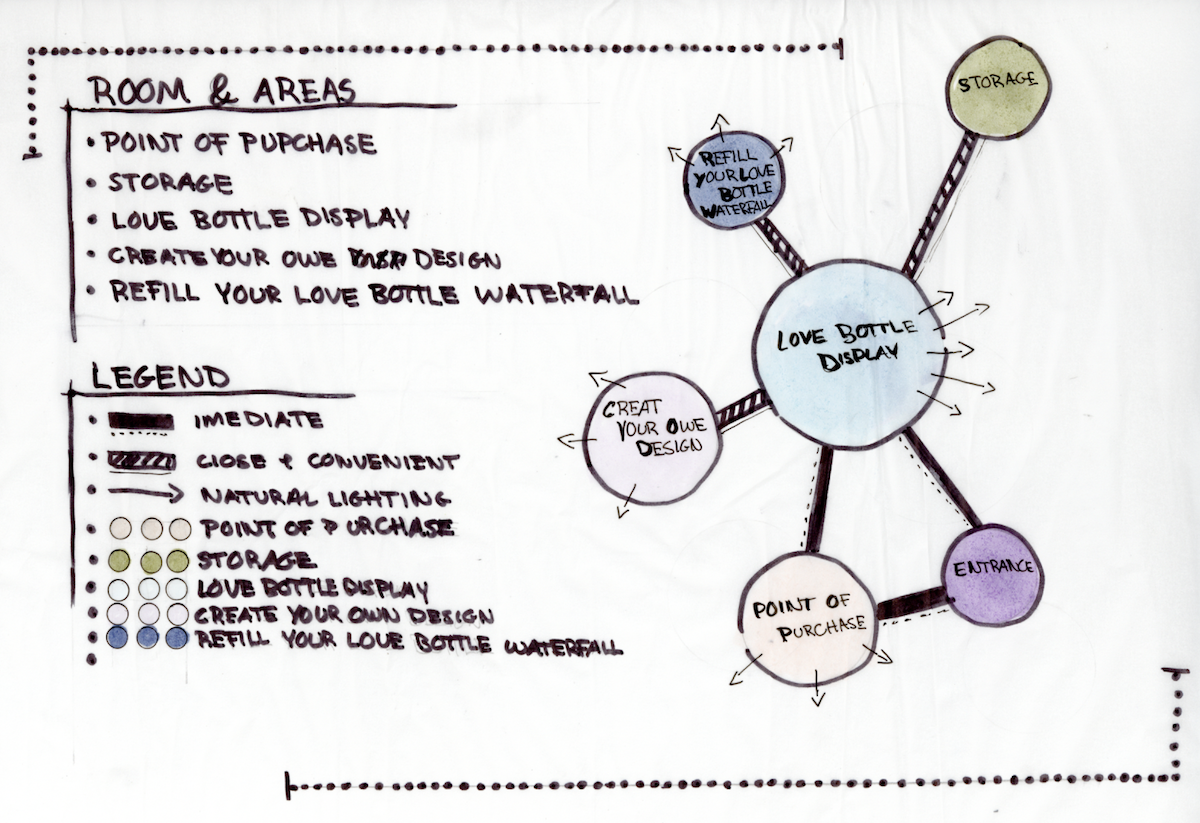 ROOM & AREAS
• POINT OF PUPCHASE
• STORAGE
• LOVE BOTTLE DISPLAY
• CREATE YOUR OWE DESIGN
• REFILL YOUR LOVE BOTTLE WATERFALL
LEGEND
• IMEDIATE
• CLOSE + CONVENIENT
• NATURAL LIGHTING
• POINT OF PURCHASE
• STORAGE
• LOVE BOTTLE DISPLAY
• CREATE YOUR OWN DESIGN
• REFILL YOUR LOVE BOTTLE WATERFALL
STORAGE
REFILL
YOUR LOVE
BOTTLE
WATERFALL
LOVE BOTTLE
DISPLAY
CREAT
YOUR OWE
DESIGN
ENTRANCE
POINT OF
PURCHASE